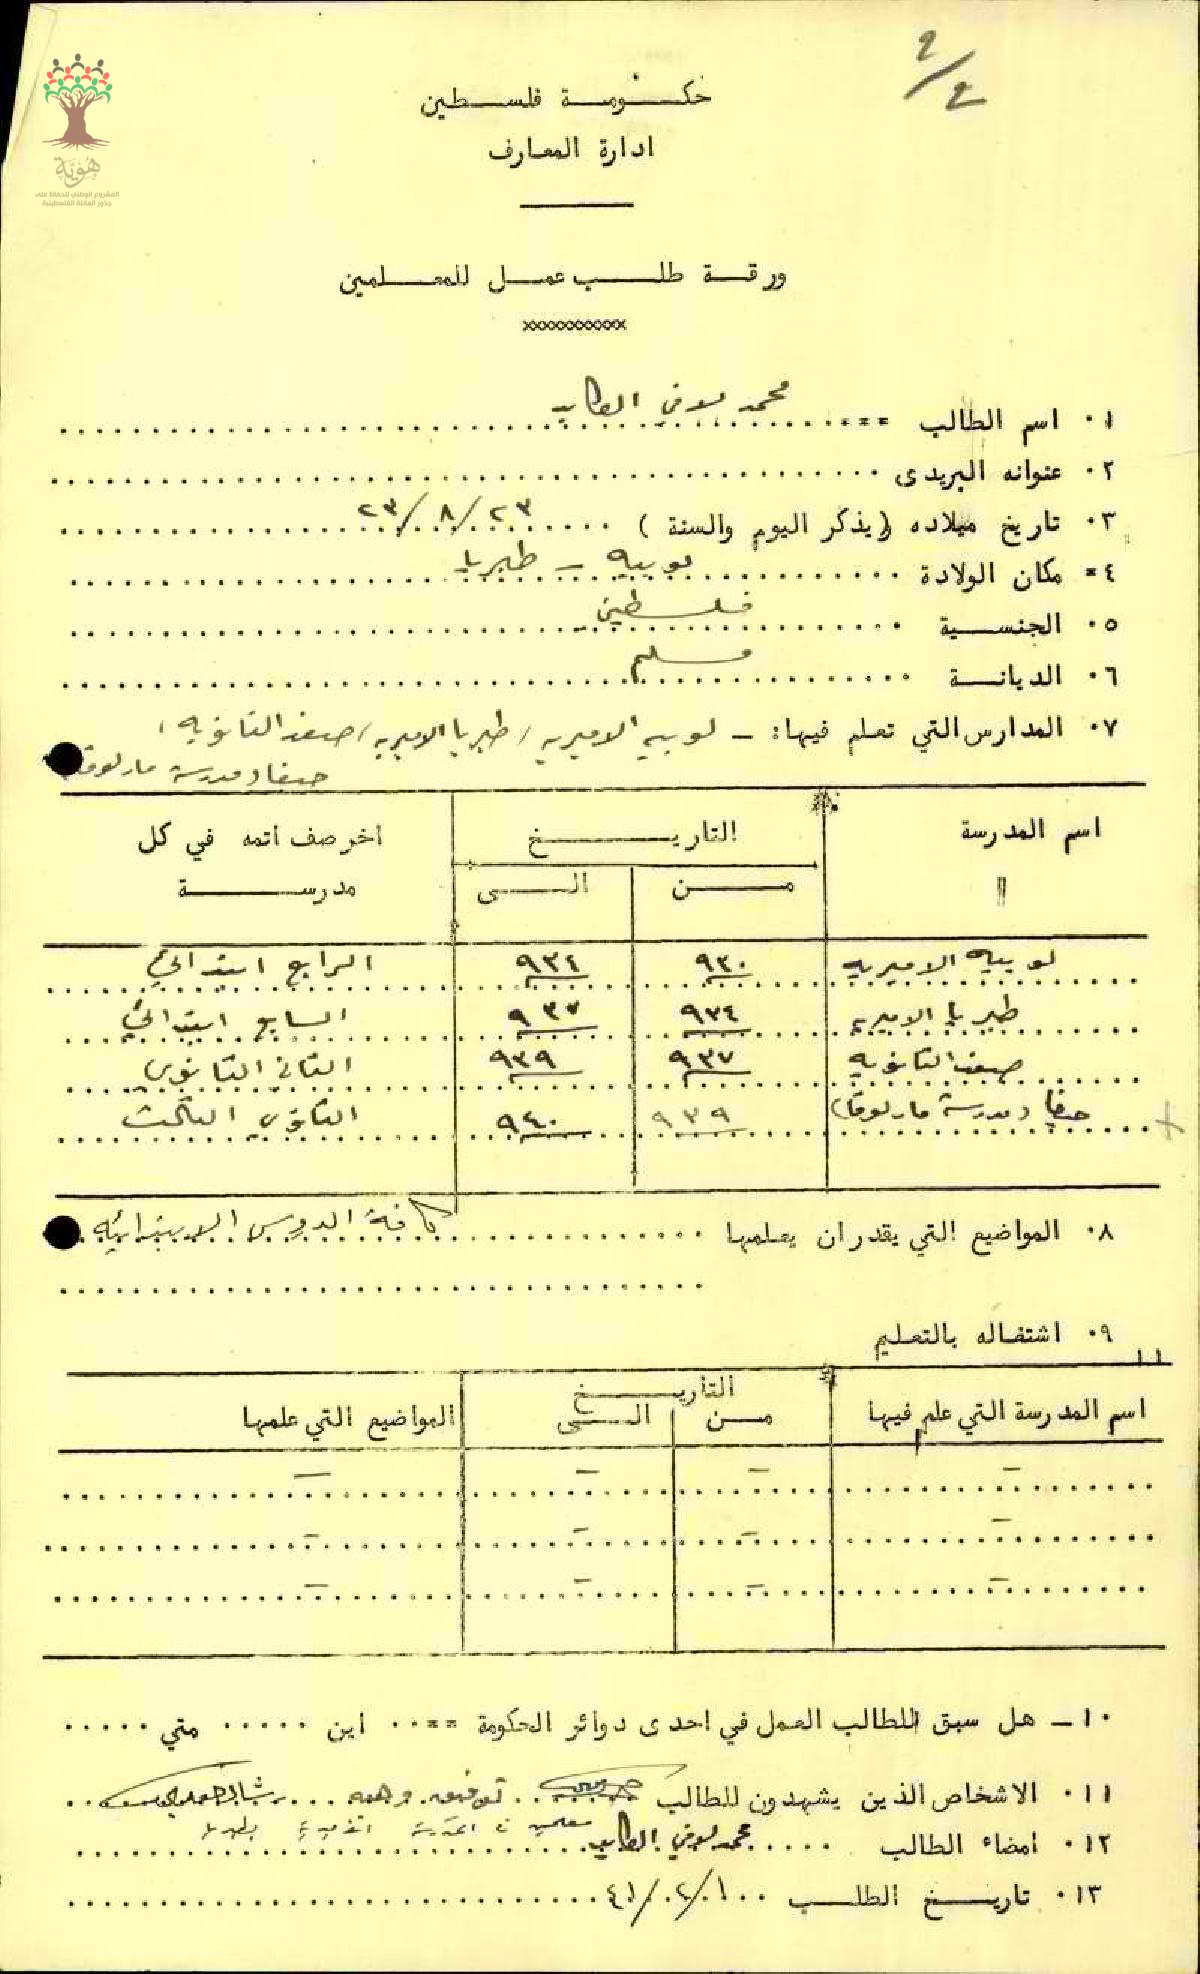 ٢/٤
هوية
المشروع الوطني للحفاظ على
جذور العائلة الفلسطينية
حكـــومـــة فلســطين
ادارة المعارف
ورقـــة طلـــب عمـــل للمعـــلمين
xxxxxxxxxxxx
٠١ اسم الطالب محمد العابد
٠٢ عنوانه البريدى
٠٣ تاريخ ميلاده (يذكر اليوم والسنة) ٢٣/٨/٢٣
٤= مكان الولادة لوبيه – طبريا
٠٥ الجنســية فلسطيني
٠٦ الديانـــة مسلم
٠٧ المدارس التي تعلم فيها: – لوبيه الاميريه / طبريا الاميريه / صفد الثانويه ،
حيفا (مدرسة مارلوقا)
اسم المدرسة التاريـــــخ اخر صف اتمه في كل
" مـــن الـــى مدرســـة
لوبيه الاميريه ٩٣٠ ٩٣٤ الرابع ابتدائي
طبريا الاميريه ٩٣٤ ٩٣٧ السابع ابتدائي
صفد الثانويه ٩٣٧ ٩٣٩ الثاني الثانوي
حيفا (مدرسة مارلوقا) ٩٣٩ ٩٤٠ الثانوي الثالث
٠٨ المواضيع التي يقدر ان يعلمها كافة الدروس الابتدائيه
٠٩ اشتغاله بالتعليم
التاريـــــخ
اسم المدرسة التي علم فيها مـــن الـــى المواضيع التي علمها
– – – –
– – – –
– – – –
١٠– هل سبق للطالب العمل في احدى دوائر الحكومة == اين متي
٠١١ الاشخاص الذين يشهدون للطالب توفيق وهبه
٠١٢ امضاء الطالب محمد العابد
٠١٣ تاريـــخ الطلـــب ١٠/٢/٤١